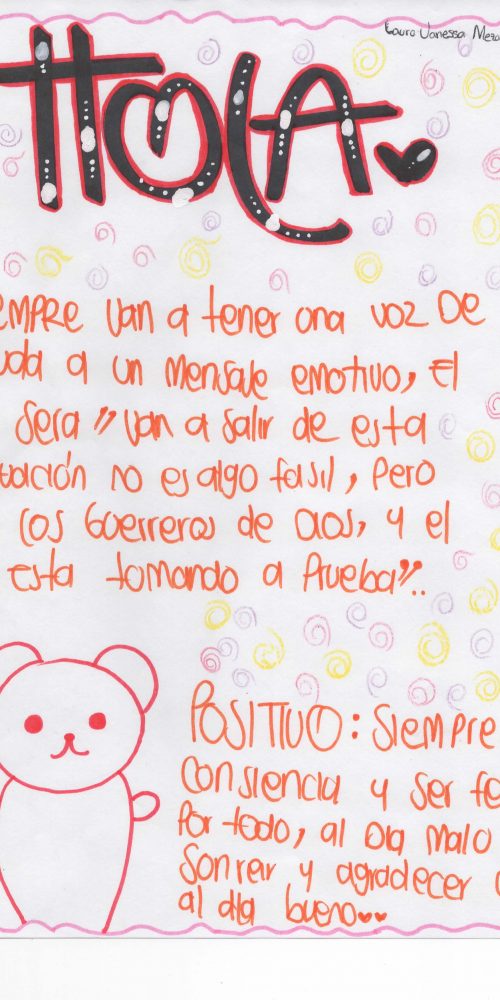 Laura Vanessa Meza
HOLA
EMPRE van a tener una voz DE
uda a un mensaje emotivo, El
sera " van a salir de esta
tuación no es algo fasil, pero
los Guerreros de Dios, y el
esta tomando a Prueba"..
POSITIVO: Siempre
consiencia y ser fe
Por todo, al Dia malo
sonreir y agradecer
al dia bueno